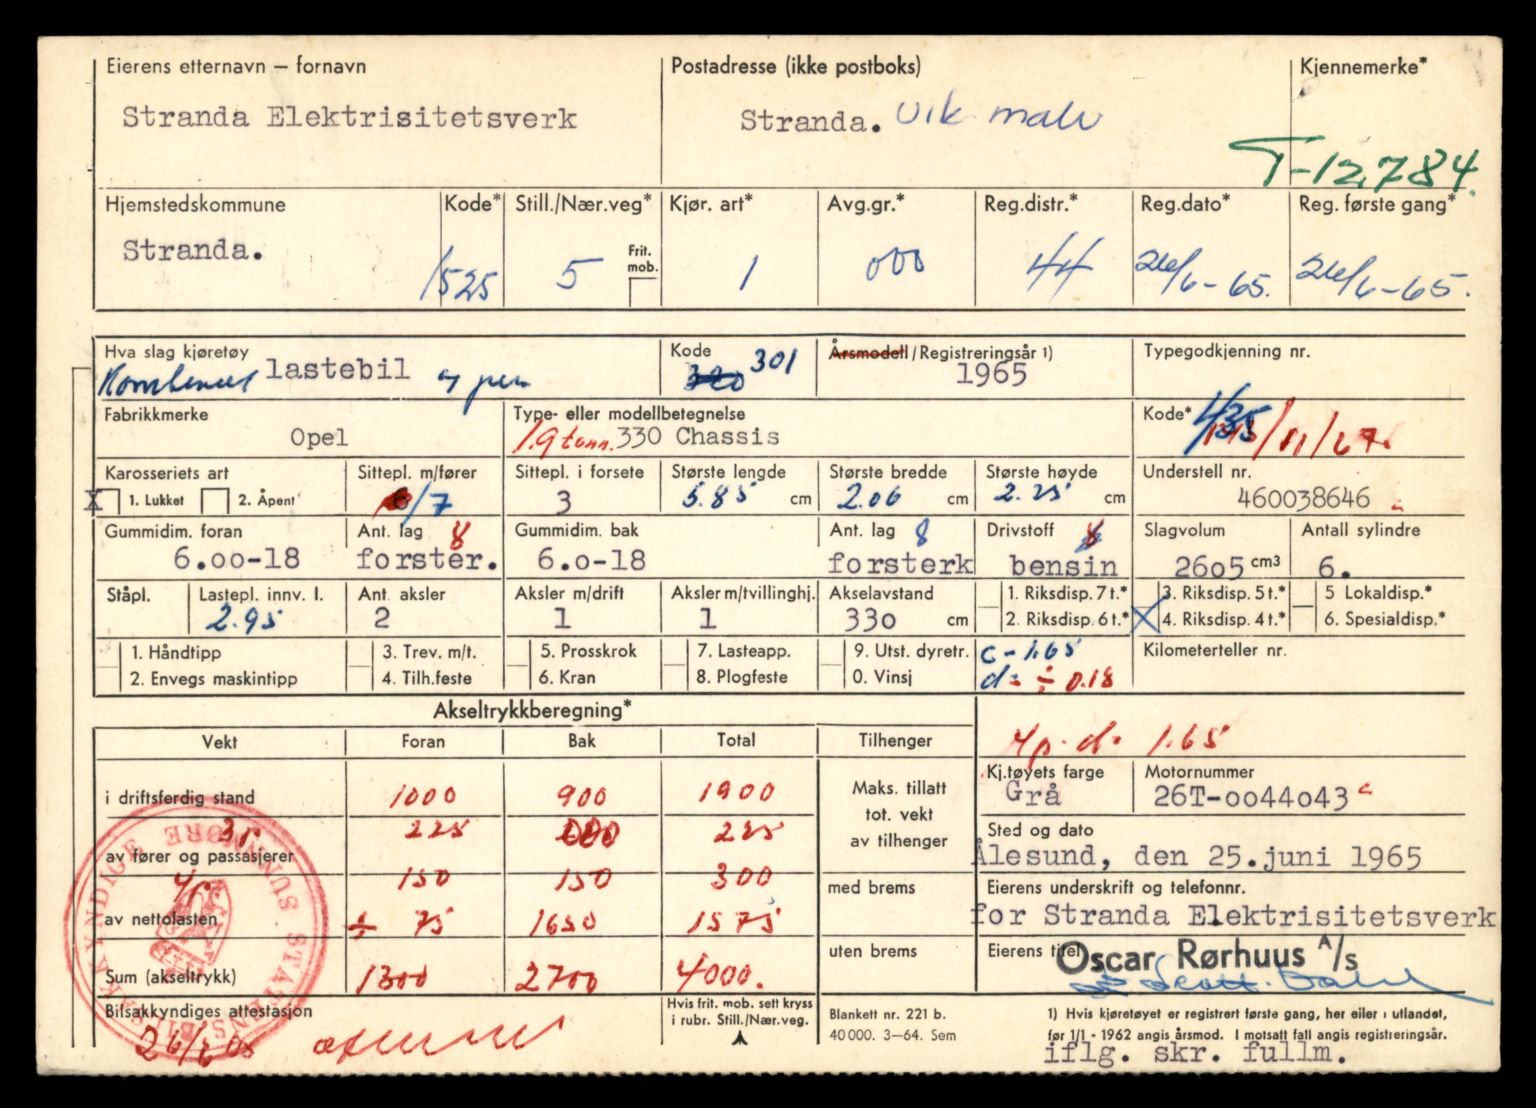 Eierens etternavn – fornavn Postadresse (ikke postboks) Kjennemerke*
Stranda Elektrisitetsverk Stranda.
T-12.784.
Hjemstedskommune Kode* Still./Nær.veg* Kjør. art* Avg.gr.* Reg.distr.* Reg.dato* Reg. første gang*
Stranda. Frit. mob.
1525 5 1 000 44 26/6-65. 26/6-65.
Hva slag kjøretøy Kode Årsmodell/Registreringsår 1) Typegodkjenning nr.
lastebil 301 1965
Fabrikkmerke Type- eller modellbetegnelse Kode*
Opel 1.9 tonn. 330 Chassis
Karosseriets art Sittepl. m/fører Sittepl. i forsete Største lengde Største bredde Største høyde Understell nr.
X 1. Lukket 2. Åpent 6/7 3 5.85 cm 2.06 cm 2.25 cm 460038646
Gummidim. foran Ant. lag 8 Gummidim. bak Ant. lag 8 Drivstoff 8 Slagvolum Antall sylindre
6.00-18 forster. 6.0-18 forsterk bensin 2605 cm3 6.
Ståpl. Lastepl. innv. l. Ant. aksler Aksler m/drift Aksler m/tvillinghj. Akselavstand 1. Riksdisp. 7 t.* 3. Riksdisp. 5 t.* 5 Lokaldisp.*
2.95 2 1 1 330 cm 2. Riksdisp. 6 t.* X 4. Riksdisp. 4 t.* 6. Spesialdisp.*
1. Håndtipp 3. Trev. m/t. 5. Prosskrok 7. Lasteapp. 9. Utst. dyretr. c - 1.65 Kilometerteller nr.
2. Envegs maskintipp 4. Tilh.feste 6. Kran 8. Plogfeste 0. Vinsj d = ÷ 0.18
Akseltrykkberegning*
Vekt Foran Bak Total Tilhenger 1.65
i driftsferdig stand 1000 900 1900 Maks. tillatt tot. vekt av tilhenger Kj.tøyets farge Motornummer
Grå 26T-0044043
225 225 Sted og dato
av fører og passasjerer Ålesund, den 25.juni 1965
150 150 300 med brems Eierens underskrift og telefonnr.
av nettolasten ÷ 75 1650 1575 for Stranda Elektrisitetsverk
uten brems Eierens titel Oscar Rørhuus A/s
Sum (akseltrykk) 1300 2700 4000.
Bilsakkyndiges attestasjon Hvis frit. mob. sett kryss i rubr. Still./Nær.veg. Blankett nr. 221 b. 1) Hvis kjøretøyet er registrert første gang, her eller i utlandet,
26/6 65 40 000. 3–64. Sem før 1/1 - 1962 angis årsmod. I motsatt fall angis registreringsår.
iflg. skr. fullm.